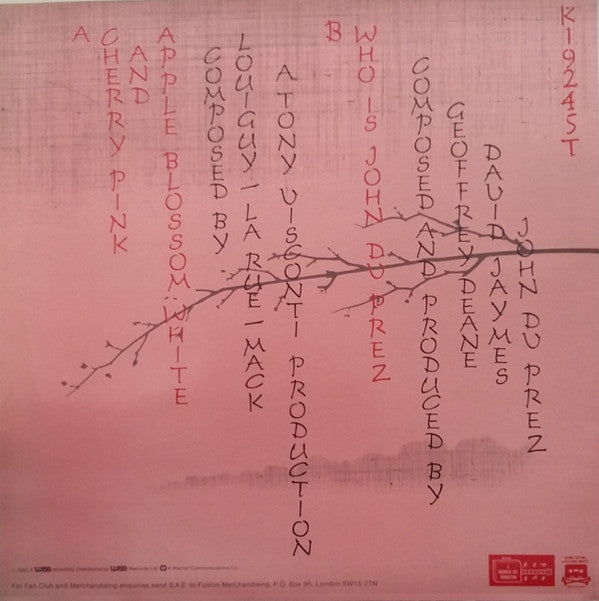 A
CHERRY PINK
AND
APPLE BLOSSOM WHITE
COMPOSED BY
LOUIGUY–LA RUE–MACK
A TONY VISCONTI PRODUCTION
B
WHO IS JOHN DU PREZ
COMPOSED AND PRODUCED BY
GEOFFREY DEANE
DAVID JAYMES
JOHN DU PREZ
K19245T
WEA Records Ltd. A Warner Communications Co.
For Fan Club and Merchandising enquiries send S.A.E. to Fusion Merchandising, P.O. Box 95, London SW15 2TN